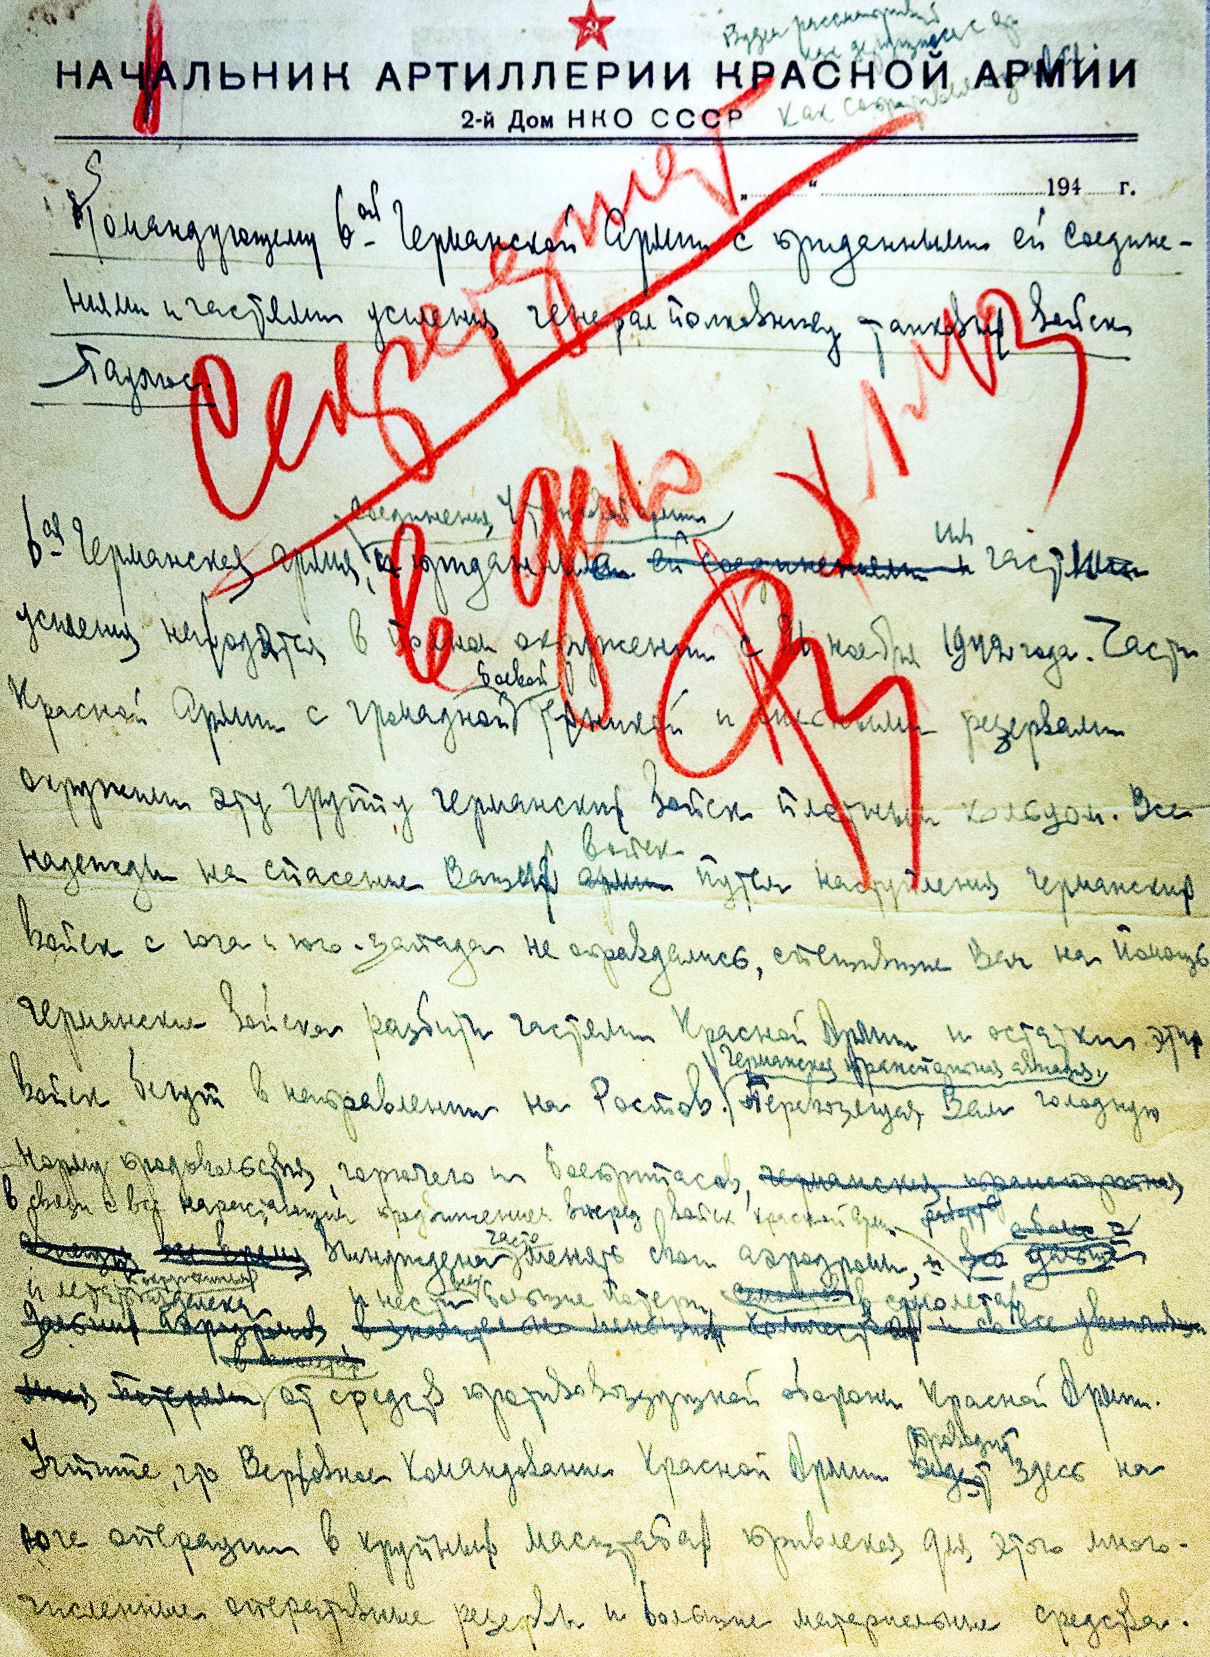 Будем рассматривать
как
НАЧАЛЬНИК АРТИЛЛЕРИИ КРАСНОЙ АРМИИ
2-й Дом НКО СССР
как
„ “ 194 г.
Командующему 6ой Германской Армии с приданными ей соедине-
ниями и частями усиления генерал полковнику танковых войск
Паулюс.
Секретно
В дело
соединения 4 танковой армии
6ая Германская армия, и приданные ей соединениями и части
усиления находятся в полном окружении с 21 ноября 1942 года. Части
боевой
Красной Армии с громадной техникой и резервами
окружили эту группу германских войск плотным кольцом. Все
войск
надежды на спасение Ваших армии путем наступления германских
войск с юга и юго-запада не оправдались, спешившие Вам на помощь
германские войска разбиты частями Красной Армии и остатки этих
Германская транспортная авиация,
войск бегут в направлении на Ростов. Перевозящая Вам голодную
норму продовольствия, горючего и боеприпасов, германская транспортная
в связи с все нарастающим продвижением вперед войск Красной Армии
часто
вынуждена менять свои аэродромы, и
и летать издалека и нести большие потери в самолетах
дальних аэродромов в значительно меньших количествах и со все
потерями от средств противовоздушной обороны Красной Армии.
проводит
Учтите, что Верховное Командование Красной Армии ведет здесь на
юге операции в крупных масштабах привлекая для этого много-
численные оперативные резервы и большие материальные средства.